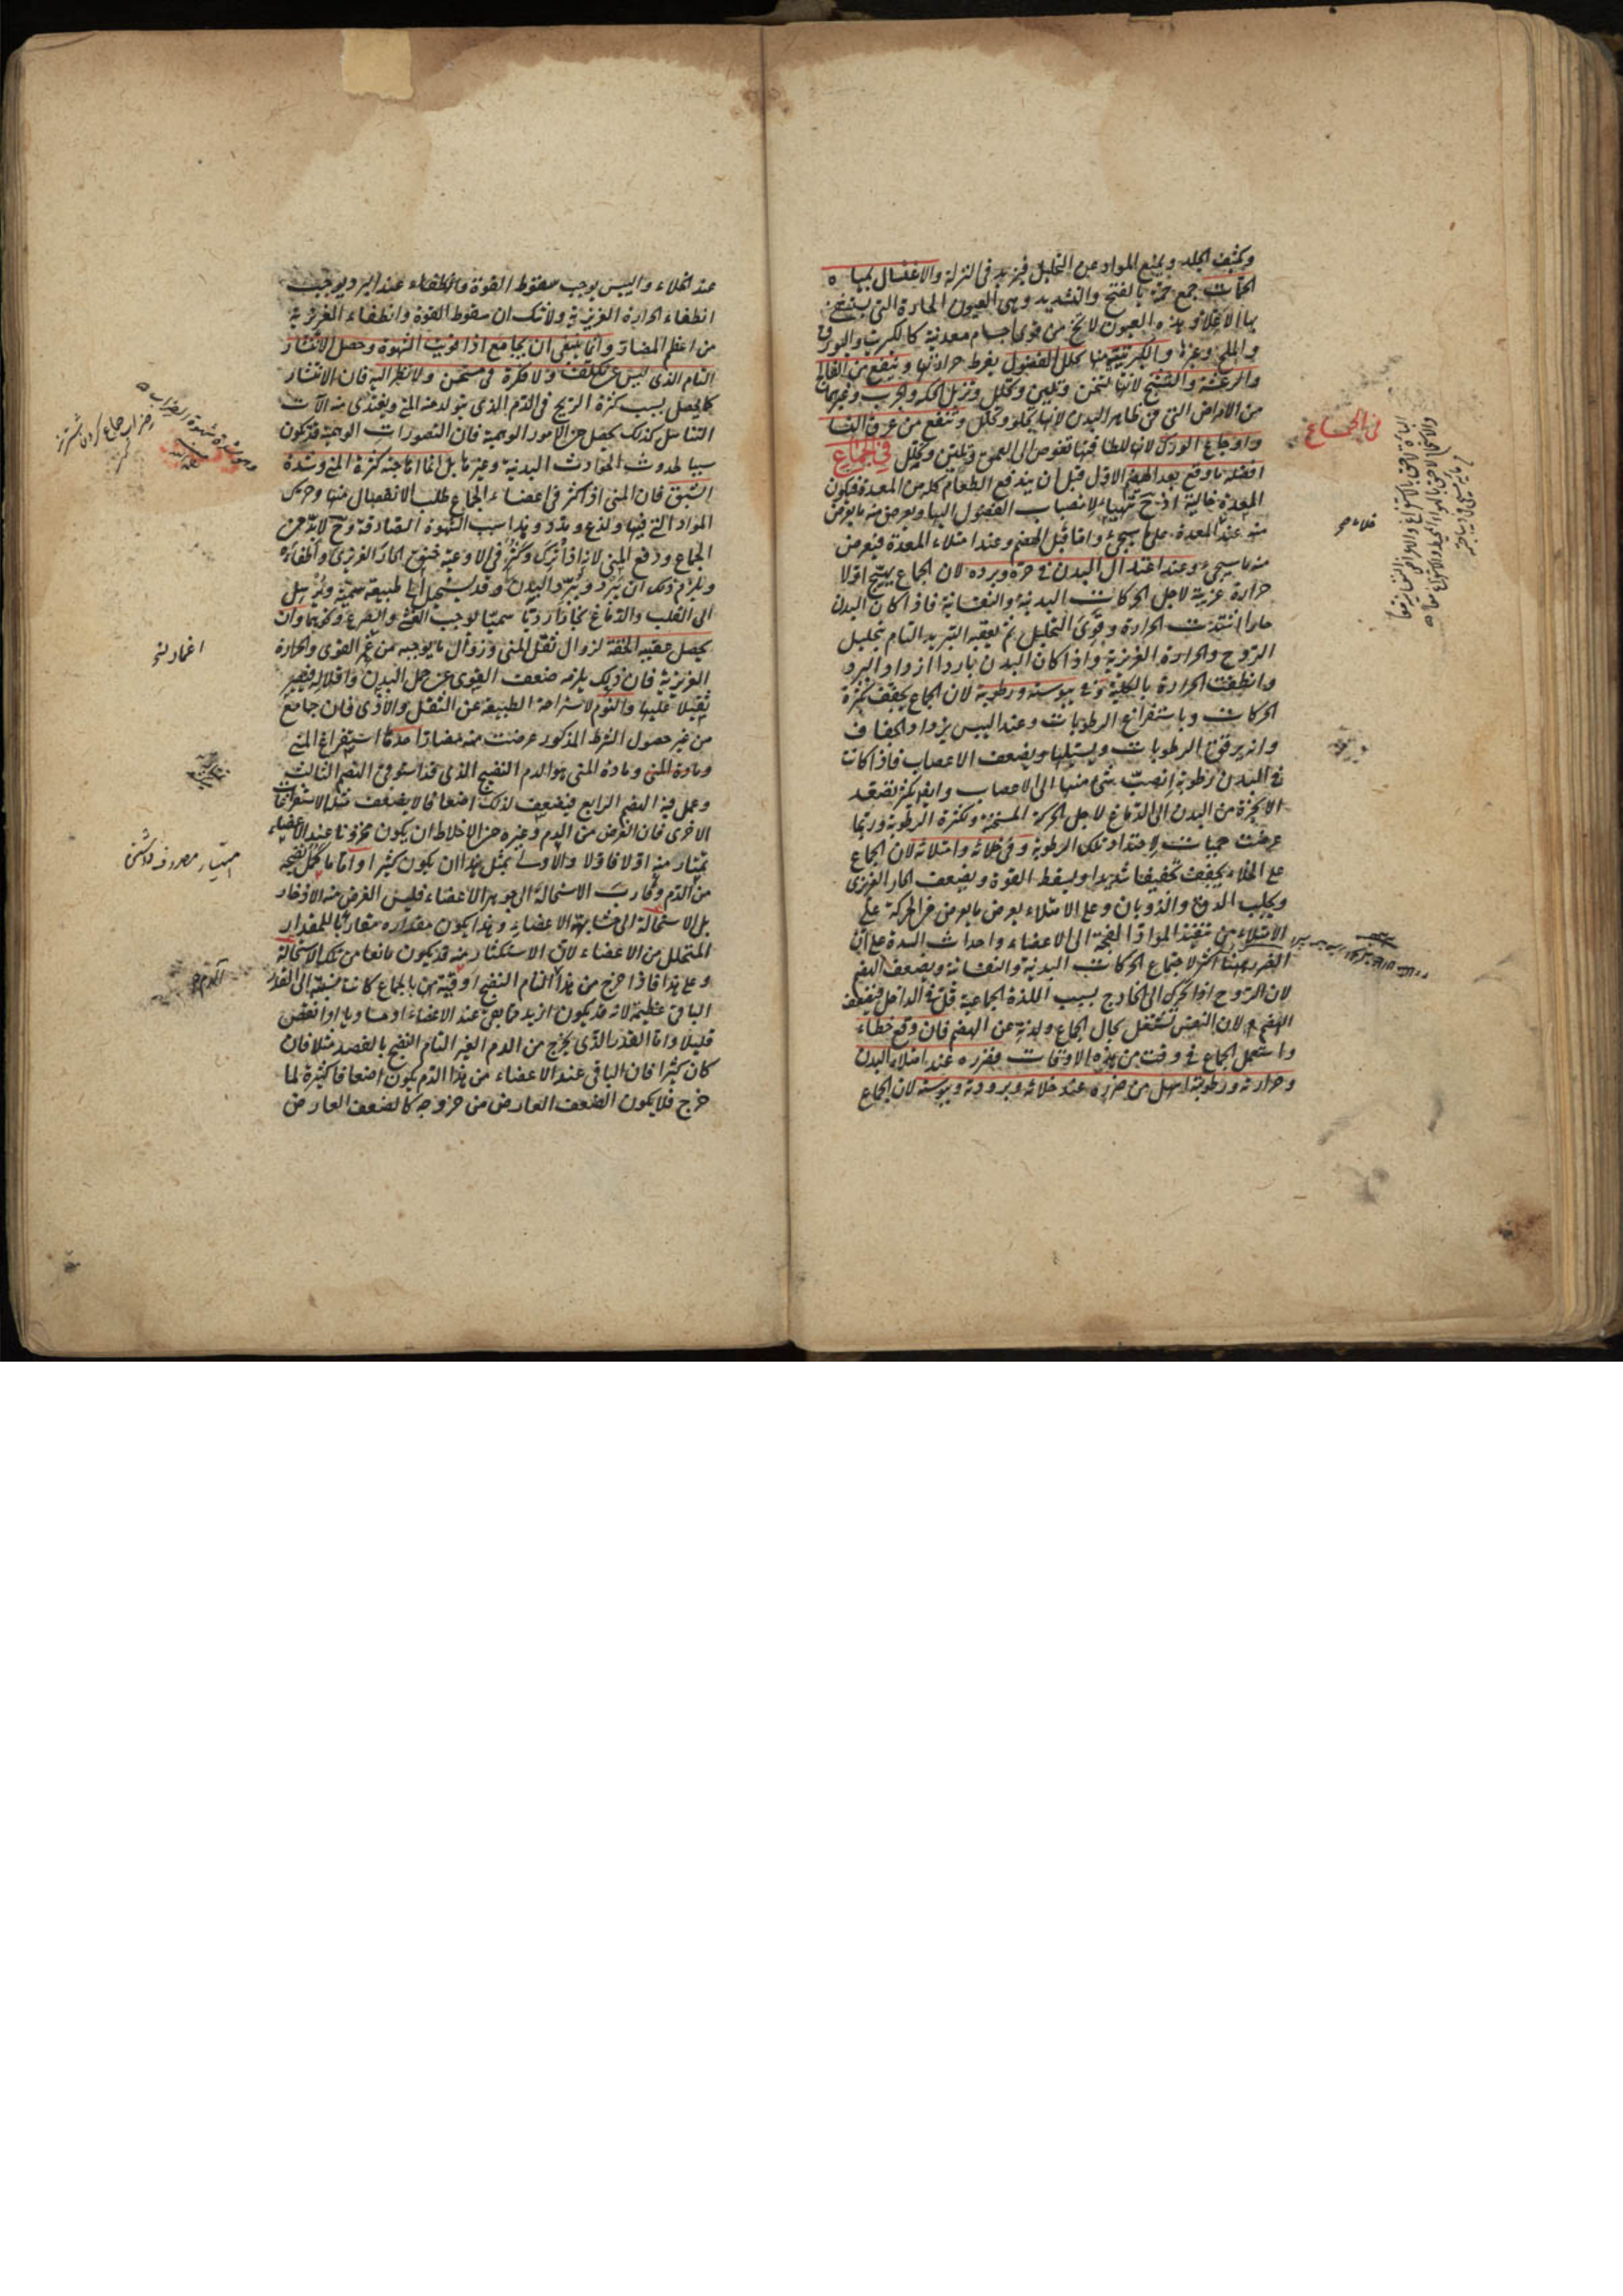 ويكثف الجلد ويمنع المواد عن التحليل فيزيد في النزلة والاغتسال بمياه
الحمات جمع حمة بالفتح والتشديد وهي العيون الحارة التي يستشفي
بها الاعلاء وهذه العيون لا تخ من قوى اجسام معدنية كالكبريت والبورق
والملح وغيرها والكبريتية منها تحلل الفضول بفرط حرارتها وينفع من الفالج
والرعشة والتشنج لانها تسخن وتلين وتحلل وتزيل الحكة والجرب وغيرهما
من الامراض التي في ظاهر البدن لانها تجلو وتحلل وتنفع من عرق النسا
واوجاع الورك لانها للطافتها تغوص الى العمق وتلين وتحلل في الجماع
افضله ما وقع بعد الهضم الاول قبل ان يندفع الطعام كله من المعدة فيكون
المعدة خالية اذ ح تتهيأ لانصباب الفضول اليها ويعرض منه ما يعرض
منه عند المعدة على ما سيجئ واما قبل الهضم وعند امتلاء المعدة فيعرض
منه ما سيجئ وعند اعتدال البدن في حره وبرده لان الجماع يهيج اولا
حرارة غريبة لاجل الحركات البدنية والنفسانية فاذا كان البدن
حارا اشتدت الحرارة وقوى التحليل ثم يعقبه التبريد التام بتحليل
الروح والحرارة الغريزية واذا كان البدن باردا ازداد البرد
وانطفت الحرارة بالكلية وفي يبوسته ورطوبته لان الجماع يجفف بكثرة
الحركات وباستفراغ الرطوبات وعند اليبس يزداد الجفاف
وانه يرقق الرطوبات ويسيلها ويضعف الاعصاب فاذا كانت
في البدن رطوبة انصب شئ منها الى الاعصاب وايض يكثر تصعد
الابخرة من البدن الى الدماغ لاجل الحركة المسخنة وبكثرة الرطوبة وربما
عرضت حميات لاحتداد تلك الرطوبة وفي خلائه وامتلائه لان الجماع
على الخلاء يجفف تجفيفا شديدا ويسقط القوة ويضعف الحار الغريزي
ويجلب الدق والذوبان وعلى الامتلاء يعرض ما يعرض من الحركة على
الامتلاء من تنفيذ المواد الفجة الى الاعضاء واحداث السدة على ان
الضرر ههنا اكثر لاجتماع الحركات البدنية والنفسانية ويضعف الهضم
لان الروح اذا تحرك الى الخارج بسبب اللذة الجماعية قلت في الداخل فيضعف
الهضم ولان النفس تشتغل بحال الجماع ولذته عن الهضم فان وقع خطاء
واستعمل الجماع في وقت من هذه الاوقات فضرره عند امتلاء البدن
وحرارته ورطوبته اسهل من ضرره عند خلائه وبرودته ويبوسته لان الجماع
في الجماع
عند الخلاء واليبس يوجب سقوط القوة وانطفاء عند البرد يوجب
انطفاء الحرارة الغريزية ولا شك ان سقوط القوة وانطفاء الغريزية
من اعظم المضار وانما ينبغي ان يجامع اذا قويت الشهوة وحصل الانتشار
التام الذي ليس عن تكلف ولا فكرة في مستحسن ولا نظر اليه فان الانتشار
كما يحصل بسبب كثرة الريح في الدم الذي يتولد عنه المني ويغتذي منه الآت
التناسل كذلك يحصل من الامور الوهمية فان التصورات الوهمية قد تكون
سببا لحدوث الحوادث البدنية وغيرها بل انما اهاجته كثرة المني وشدة
الشبق فان المني اذا كثر في اعضاء الجماع طلب الانفصال منها وحرك
المواد التي فيها ولذع ومدد وهذا سبب الشهوة الصادقة وح لا بد من
الجماع ودفع المني لانه اذا ترك وكثر في الاوعية خنق الحار الغريزي واطفاه
ويلزم ذلك ان يبرد ويبرد البدن وقد يستحيل الى طبيعة سمية ويرسل
الى القلب والدماغ بخارا رديا سميا يوجب الغشي والصرع ونحوهما وان
يحصل عقيبه الخفة لزوال ثقل المني وزوال ما يوجبه من غمر القوى والحرارة
الغريزية فان ذلك يلزمه ضعف القوى عن حمل البدن واقلاله فيصير
ثقيلا عليها والنوم لاستراحة الطبيعة عن الثقل والاذى فان جامع
من غير حصول الشرط المذكور عرضت منه مضار احدها استفراغ المني
ومادة المني ومادة المني هو الدم النضيج الذي قد استوفى الهضم الثالث
وعمل فيه الهضم الرابع فيضعف لذلك اضعافا لا يضعف مثلها الاستفراغات
الاخرى فان الغرض من الدم وغيره من الاخلاط ان يكون مخزونا عند الاعضاء
يمتار منه اولا فاولا والاولى بمثل هذا ان يكون كثيرا واما ما كمل نضجه
من الدم وقارب الاستحالة الى جوهر الاعضاء فليس الغرض منه الادخار
بل الاستحالة الى مشابهة الاعضاء وهذا يكون مقداره مقاربا للمقدار
المتحلل من الاعضاء لان الاستكثار منه قد يكون مانعا من تلك الاستحالة
وعلى هذا فاذا خرج من هذا التام النضج اوقية من بالجماع كانت نسبته الى القدر
الباقي عظيمة لانه قد يكون ازيد مما بقي عند الاعضاء او مساويا او انقص
قليلا واما القدر الذي يخرج من الدم الغير التام النضج بالفصد مثلا فان
كان كثيرا فان الباقي عند الاعضاء من هذا الدم يكون اضعافا كثيرة لما
خرج فلا يكون الضعف العارض من خروجه كالضعف العارض